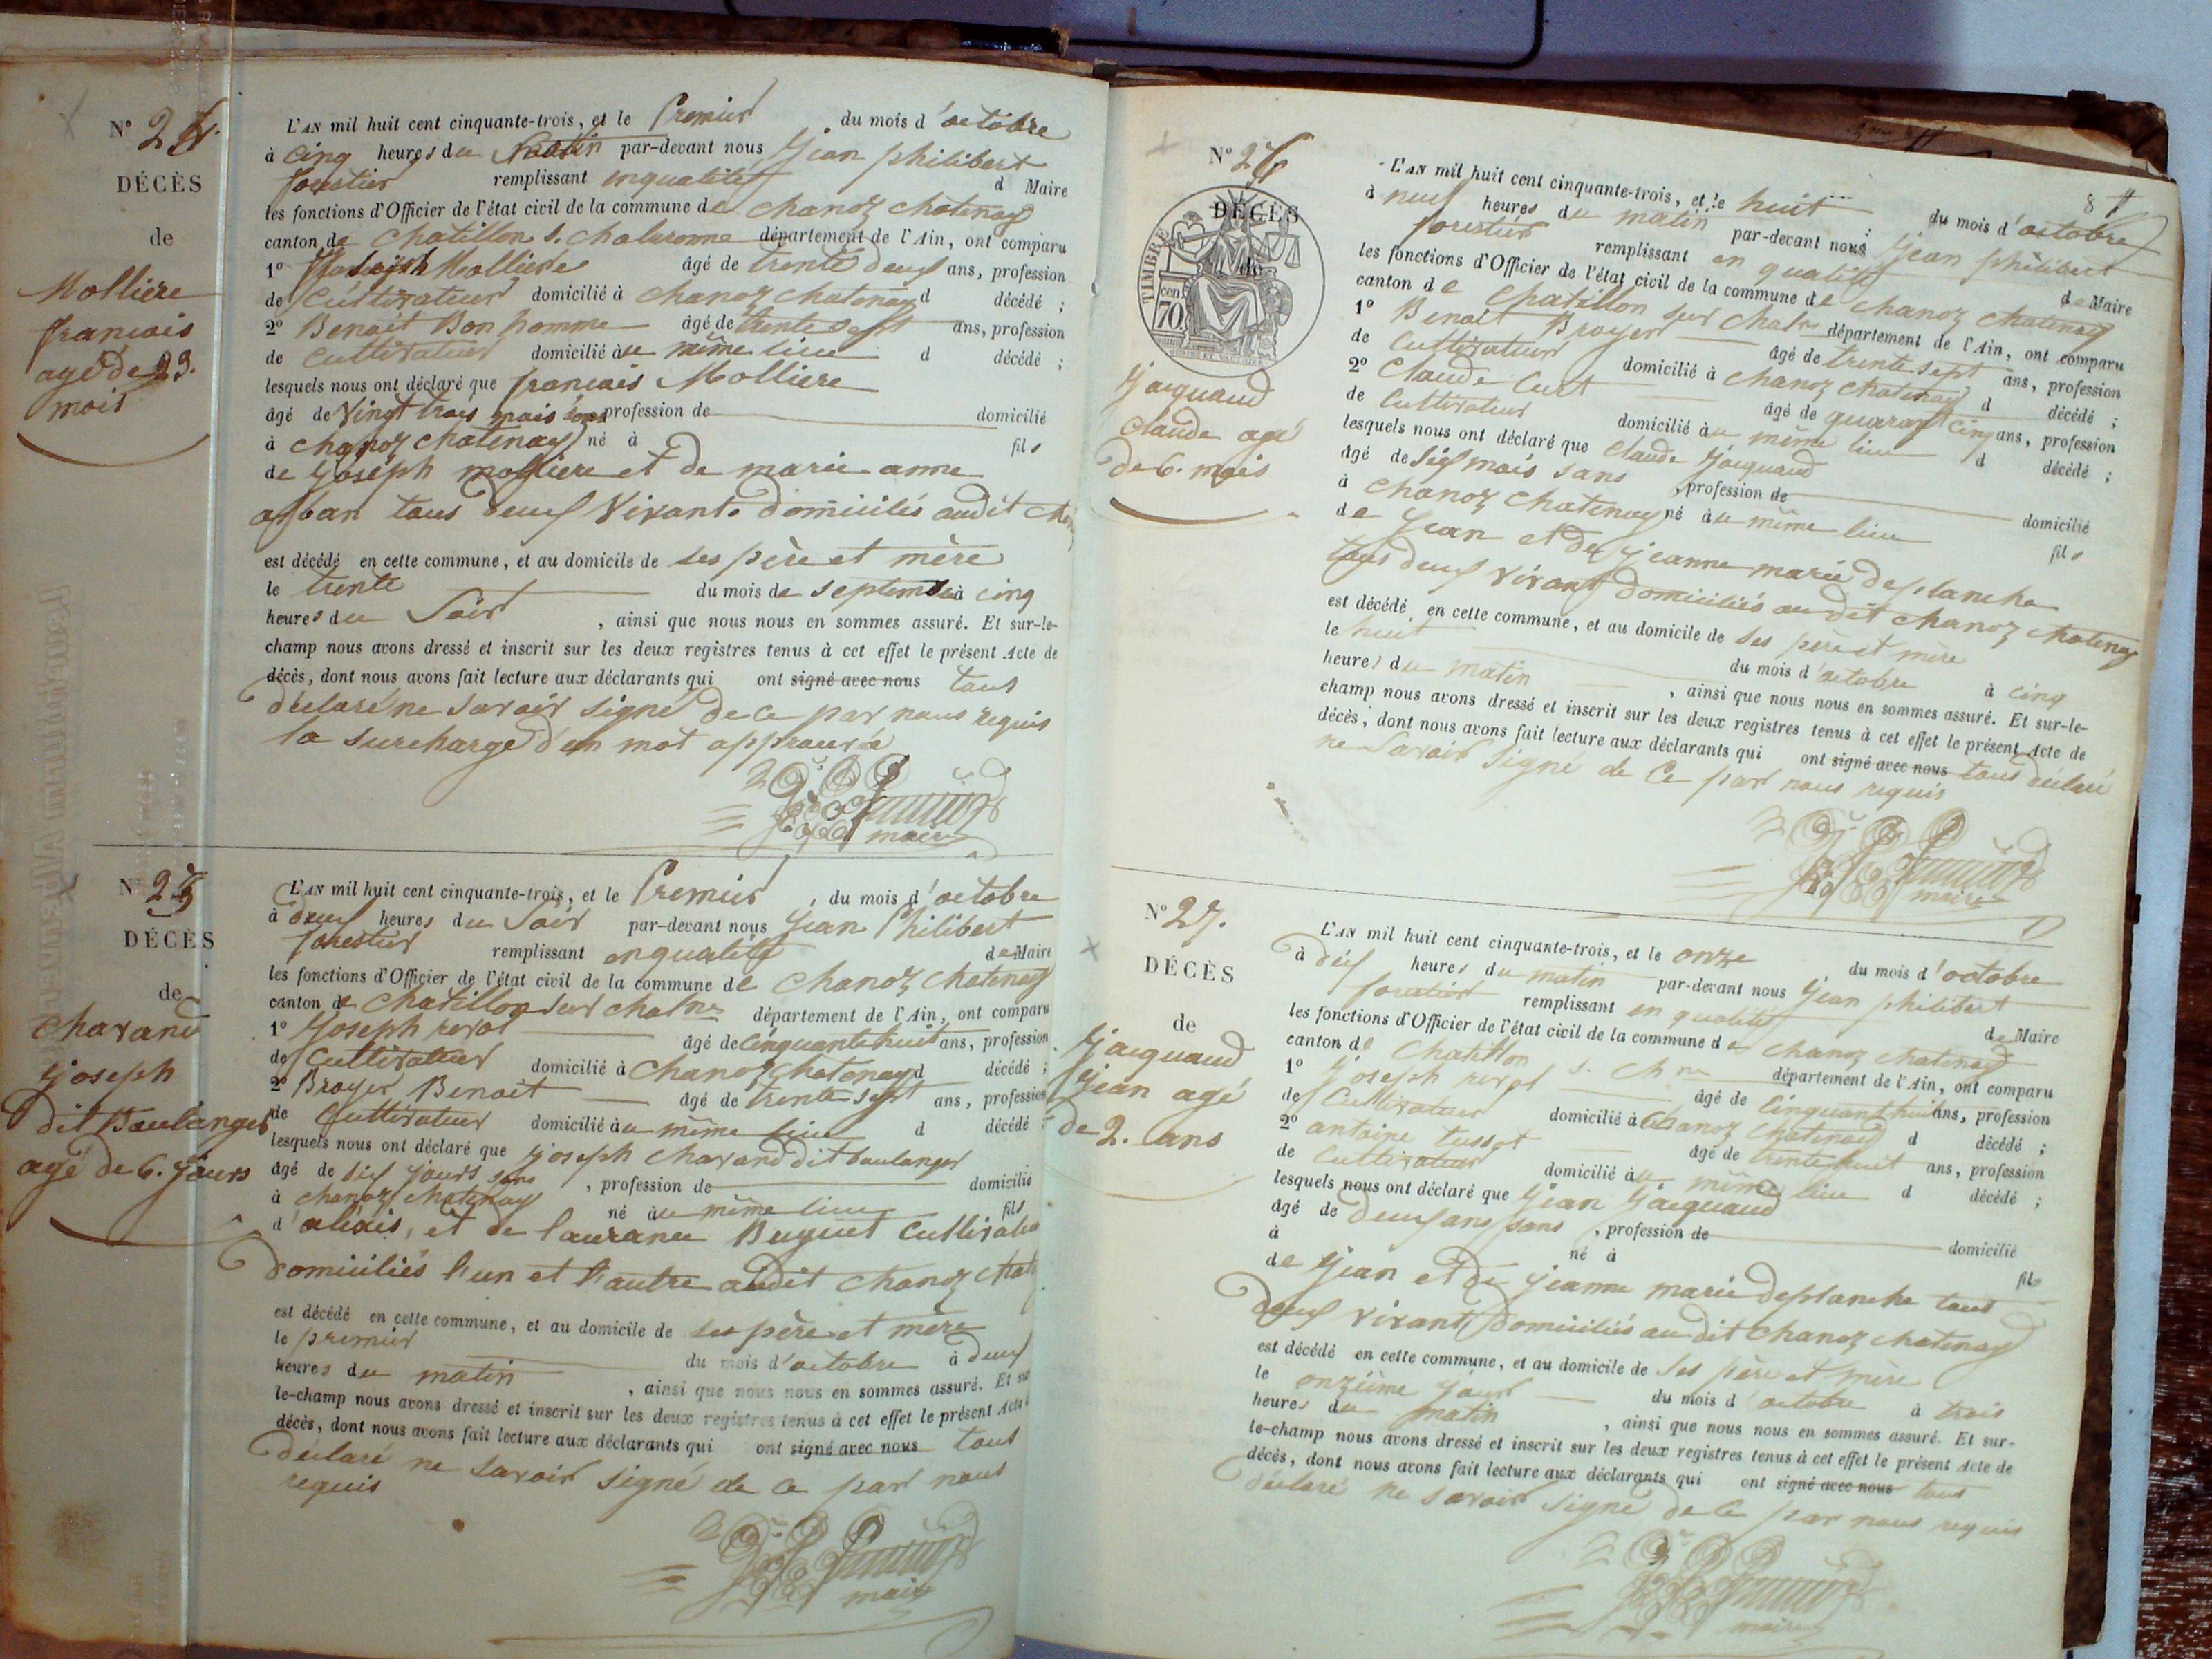 N° 24.
DÉCÈS
de
Molliere
francois
agé de 23.
mois
L'AN mil huit cent cinquante-trois, et le Premier du mois d'octobre
à cinq heures du matin par-devant nous Jean philibert
forestier remplissant en qualité d Maire
les fonctions d'Officier de l'état civil de la commune de chanoz chatenay
canton de chatillon s. chalaronne département de l'Ain, ont comparu
1° Joseph Molliere âgé de trente deux ans, profession
de Cultivateur domicilié à chanoz chatenay d décédé ;
2° Benoit Bonhomme âgé de trente sept ans, profession
de cultivateur domicilié au même lieu d décédé ;
lesquels nous ont déclaré que francois Molliere
âgé de Vingt trois mois sans profession de domicilié
à chanoz chatenay né à fils
de Joseph molliere et de marie anne
arban tous deux Vivants domiciliés audit
est décédé en cette commune, et au domicile de ses père et mère
le trente du mois de septembre à cinq
heures du Soir , ainsi que nous nous en sommes assuré. Et sur-le-
champ nous avons dressé et inscrit sur les deux registres tenus à cet effet le présent Acte de
décès, dont nous avons fait lecture aux déclarants qui ont signé avec nous tous
déclaré ne savoir signé de ce par nous requis
la surcharge d'un mot approuvée
maire
N° 25
DÉCÈS
de
Charand
Joseph
dit Boulanger
agé de 6. jours
L'AN mil huit cent cinquante-trois, et le Premier , du mois d'octobre
à deux heures du Soir par-devant nous Jean Philibert
forestier remplissant en qualité de Maire
les fonctions d'Officier de l'état civil de la commune de Chanoz Chatenay
canton de Chatillon sur chalne département de l'Ain, ont comparu
1° Joseph revol âgé de cinquante huit ans, profession
de Cultivateur domicilié à Chanoz Chatenay d décédé ;
2° Broyer Benoit âgé de trente sept ans, profession
de Cultivateur domicilié au même lieu d décédé ;
lesquels nous ont déclaré que Joseph charand dit boulanger
âgé de six jours sans , profession de domicilié
à chanoz chatenay né au même lieu fils
d'alexis, et de laurance Buguet
domiciliés l'un et l'autre audit chanoz
est décédé en cette commune, et au domicile de ses père et mère
le premier du mois d'octobre à deux
heures du matin , ainsi que nous nous en sommes assuré. Et sur
le-champ nous avons dressé et inscrit sur les deux registres tenus à cet effet le présent Acte
décès, dont nous avons fait lecture aux déclarants qui ont signé avec nous tous
déclaré ne savoir signé de ce par nous
requis
maire
8
N° 26
DÉCÈS
de
TIMBRE
70
Jacquand
Claude agé
de 6. mois
L'AN mil huit cent cinquante-trois, et le huit du mois d'octobre
à neuf heures du matin par-devant nous Jean philibert
forestier remplissant en qualité de Maire
les fonctions d'Officier de l'état civil de la commune de chanoz chatenay
canton de Chatillon sur département de l'Ain, ont comparu
1° Benoit Broyer âgé de trente sept ans, profession
de Cultivateur domicilié à chanoz chatenay d décédé ;
2° Claude Curt âgé de quarante cinq ans, profession
de Cultivateur domicilié au même lieu d décédé ;
lesquels nous ont déclaré que Claude Jacquand
âgé de six mois sans , profession de domicilié
à chanoz chatenay né au même lieu fils
de Jean et de jeanne marie desplanche
tous deux vivants domiciliés au dit chanoz chatenay
est décédé en cette commune, et au domicile de ses père et mère
le huit du mois d'octobre à cinq
heures du matin , ainsi que nous nous en sommes assuré. Et sur-le-
champ nous avons dressé et inscrit sur les deux registres tenus à cet effet le présent Acte de
décès, dont nous avons fait lecture aux déclarants qui ont signé avec nous tous déclaré
ne savoir signé de ce par nous requis
maire
N° 27.
DÉCÈS
de
Jacquand
jean agé
de 2. ans
L'AN mil huit cent cinquante-trois, et le onze du mois d'octobre
à dix heures du matin par-devant nous Jean philibert
forestier remplissant en qualité de Maire
les fonctions d'Officier de l'état civil de la commune de chanoz chatenay
canton de Chatillon s. ch ne département de l'Ain, ont comparu
1° Joseph revol âgé de cinquante huit ans, profession
de Cultivateur domicilié à Chanoz Chatenay d décédé ;
2° antoine tussot âgé de trente huit ans, profession
de Cultivateur domicilié au même lieu d décédé ;
lesquels nous ont déclaré que Jean Jacquand
âgé de deux ans sans , profession de domicilié
à né à fils
de Jean et de jeanne marie desplanche tous
deux vivants domiciliés au dit chanoz chatenay
est décédé en cette commune, et au domicile de ses père et mère
le onzième jour du mois d'octobre à trois
heures du matin , ainsi que nous nous en sommes assuré. Et sur-
le-champ nous avons dressé et inscrit sur les deux registres tenus à cet effet le présent Acte de
décès, dont nous avons fait lecture aux déclarants qui ont signé avec nous tous
déclaré ne savoir signé de ce par nous requis
maire